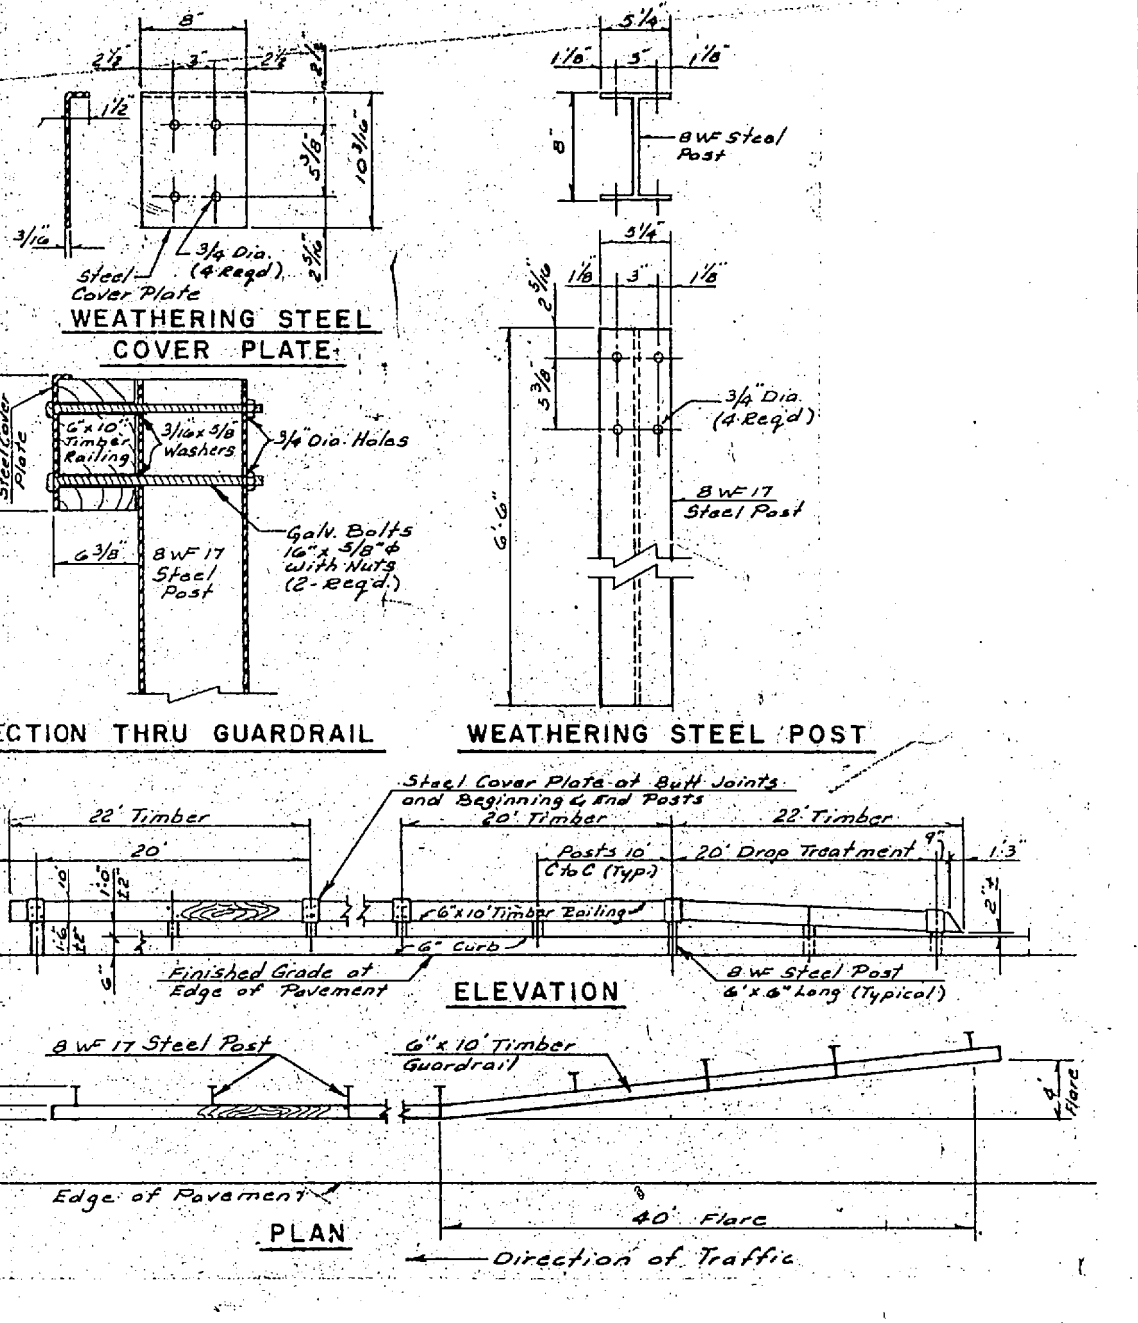 8"
2 1/2"
3"
2 1/2"
2 1/2
1 1/2"
5 3/8"
10 3/16"
3/16
2 5/16"
3/4 Dia.
(4 Reqd)
Steel
Cover Plate
WEATHERING STEEL
COVER PLATE
5 1/4"
1 1/8"
3"
1 1/8"
8"
8 WF Steel
Post
5 1/4"
1 1/8"
3"
1 1/8"
2 5/16"
5 3/8"
3/4" Dia.
(4 Reqd)
8 WF 17
Steel Post
6'-6"
WEATHERING STEEL POST
Steel Cover
Plate
6"x10"
Timber
Railing
3/16 x 5/8"
Washers
3/4" Dia. Holes
Galv. Bolts
16" x 5/8" ϕ
with Nuts
(2-Reqd.)
6 3/8"
8 WF 17
Steel
Post
ECTION THRU GUARDRAIL
Steel Cover Plate at Butt Joints
and Beginning & End Posts
22' Timber
20' Timber
22' Timber
20'
Posts 10'
C to C (Typ.)
20' Drop Treatment
9"
1'-3"
10'
1'-0"
±2"
1'-6"
±2"
6"
2"±
6"x10' Timber Railing
6" Curb
Finished Grade at
Edge of Pavement
8 WF Steel Post
6'x6" Long (Typical)
ELEVATION
8 WF 17 Steel Post
6"x10' Timber
Guardrail
4'
Flare
Edge of Pavement
40' Flare
PLAN
Direction of Traffic